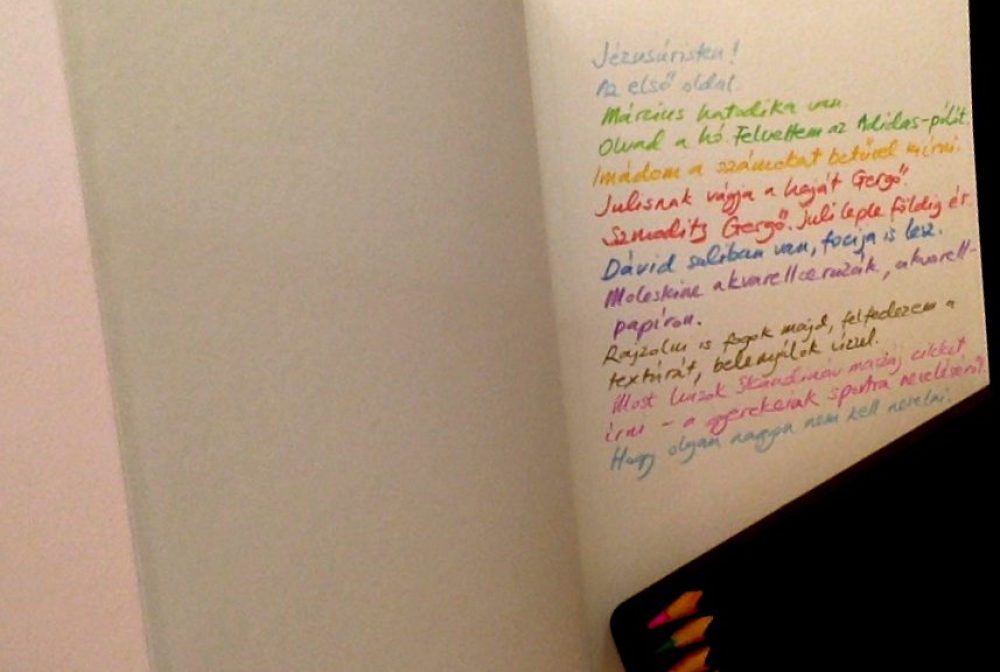 Jézusúristen!
Az első oldal.
Március hatodika van.
Olvad a hó. Felvettem az Adidas-pólót.
Imádom a számokat betűvel kiírni.
Julisnak vágja a haját Gergő.
Szmodits Gergő. Juli leple földig ér.
Dávid suliban van, focija is lesz.
Moleskine akvarellceruzák, akvarell-
papíron.
Rajzolni is fogok majd, felfedezem a
textúrát, belenyúlok vízzel.
Most hozok Skandináv cikket
írni - a gyerekeink sportra neveléséről.
Hogy olyan nagyon nem kell nevelni.